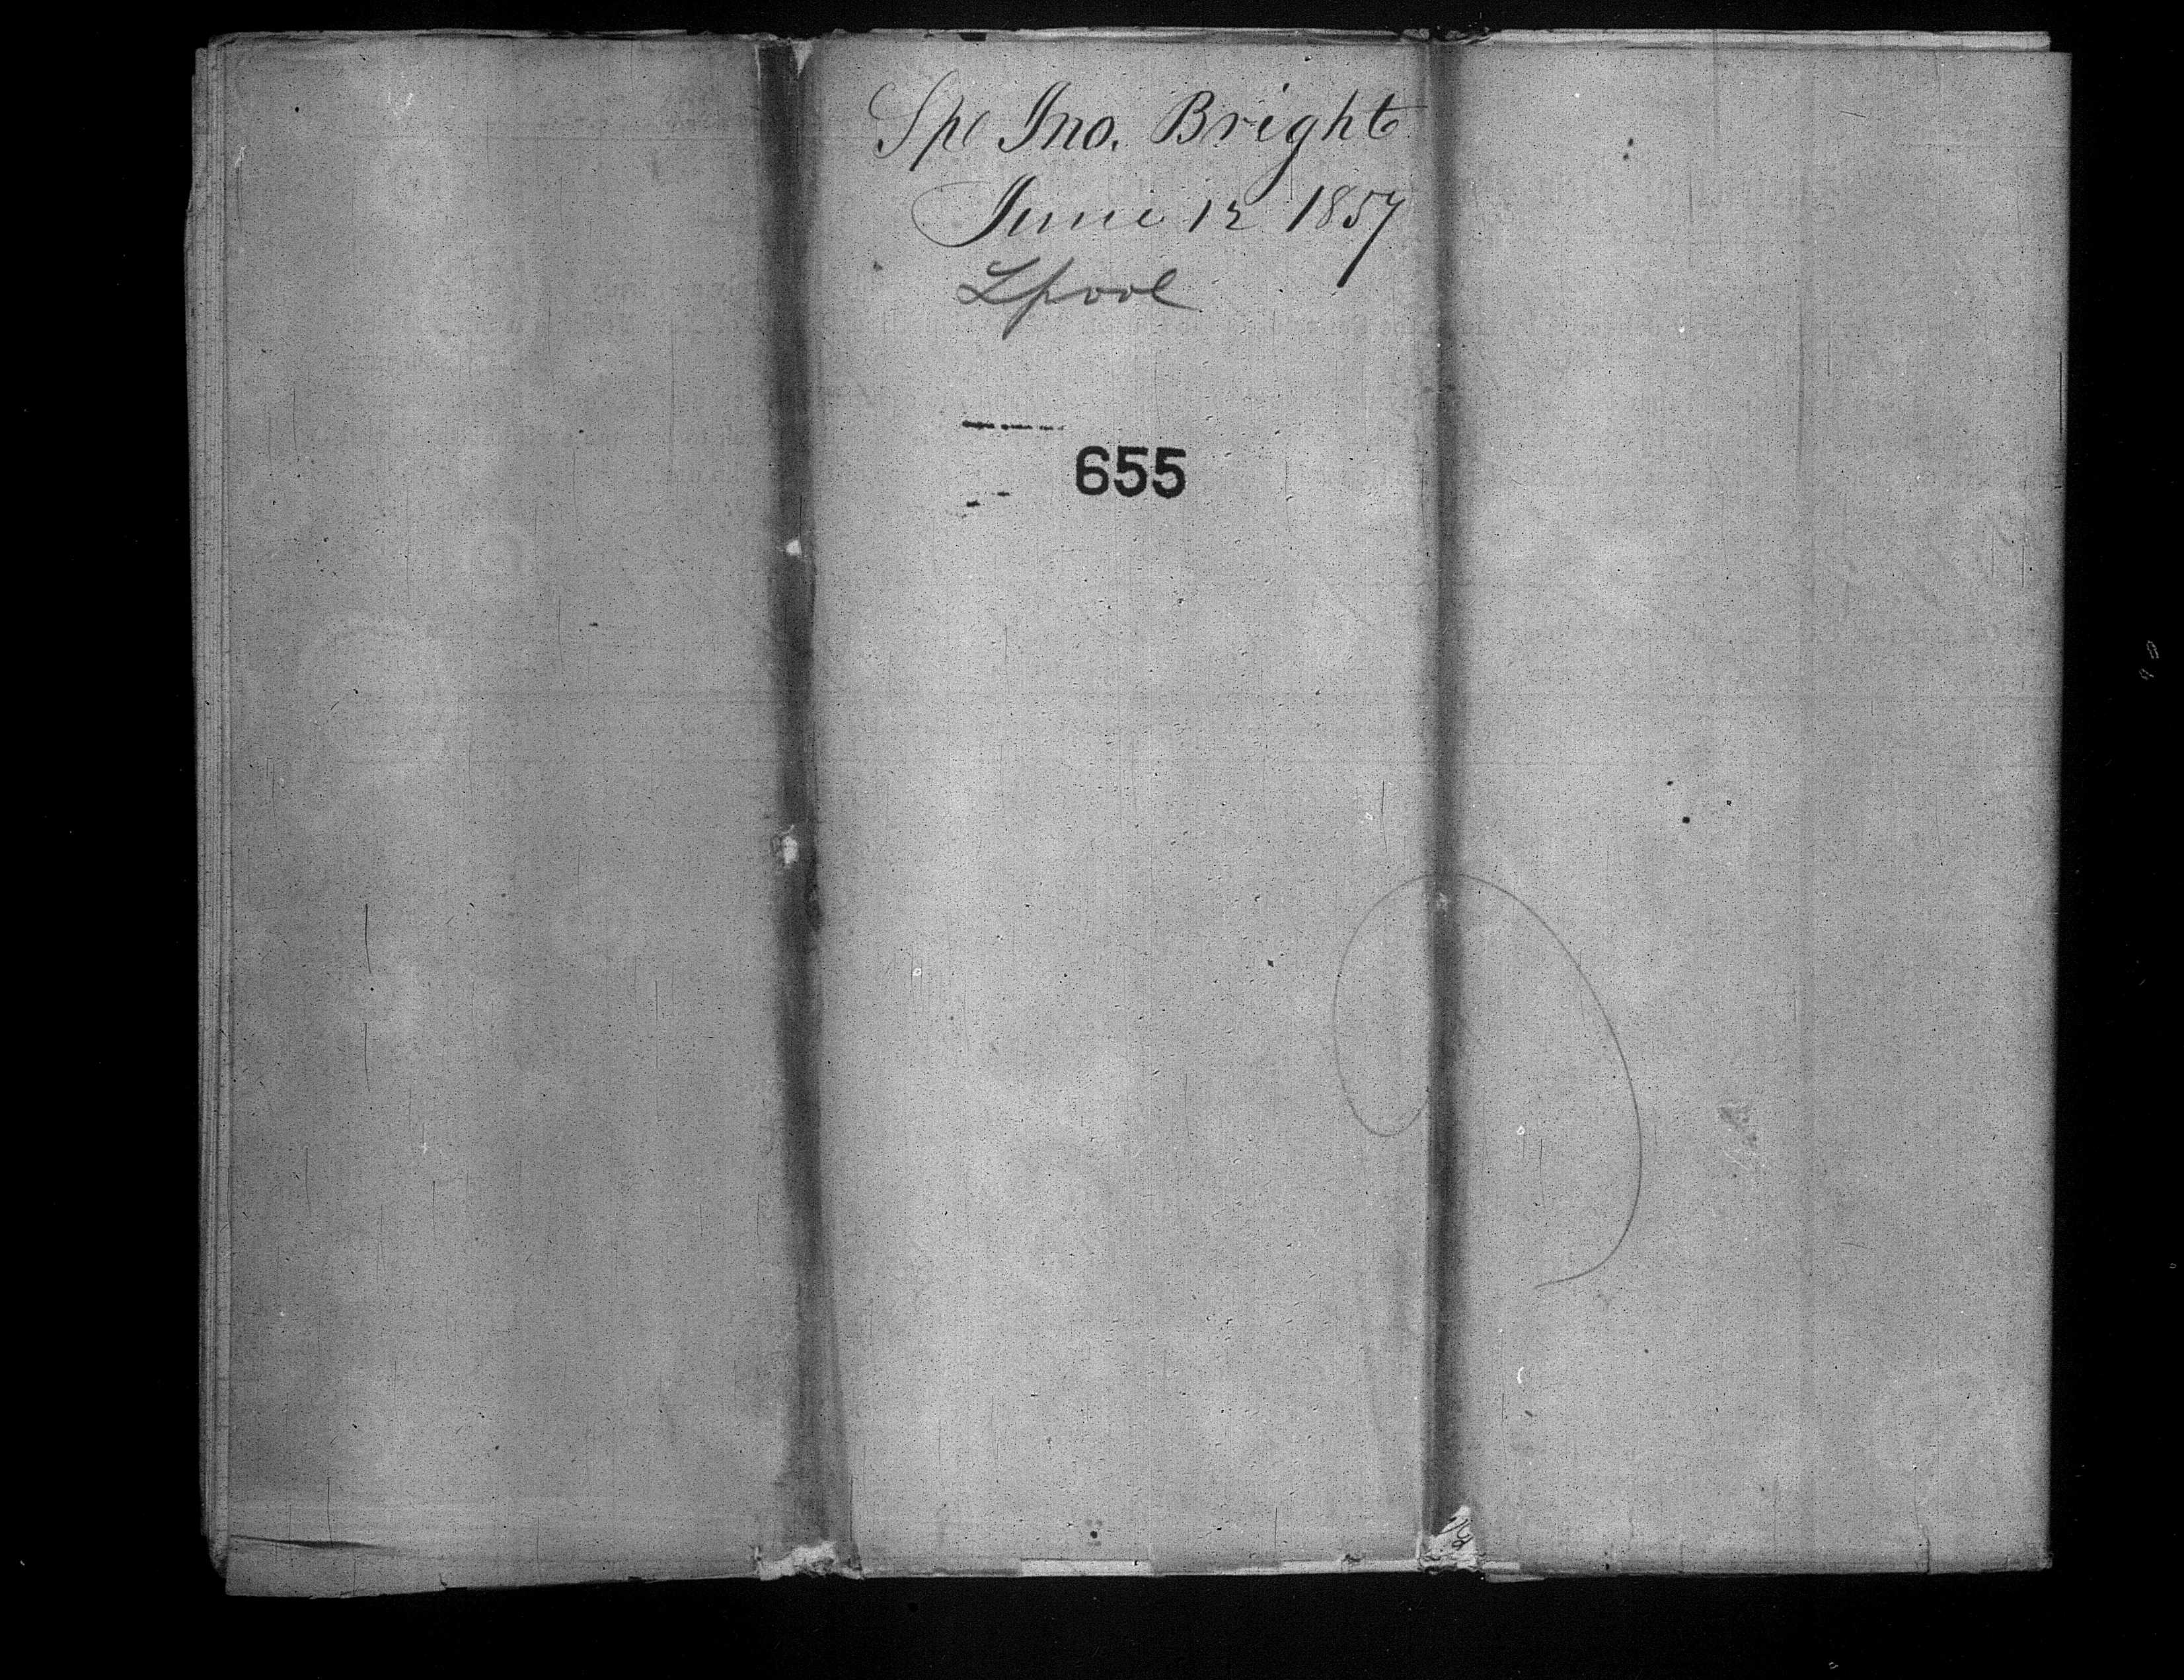 Spe Jno. Bright
June 12 1857
Lpool
655